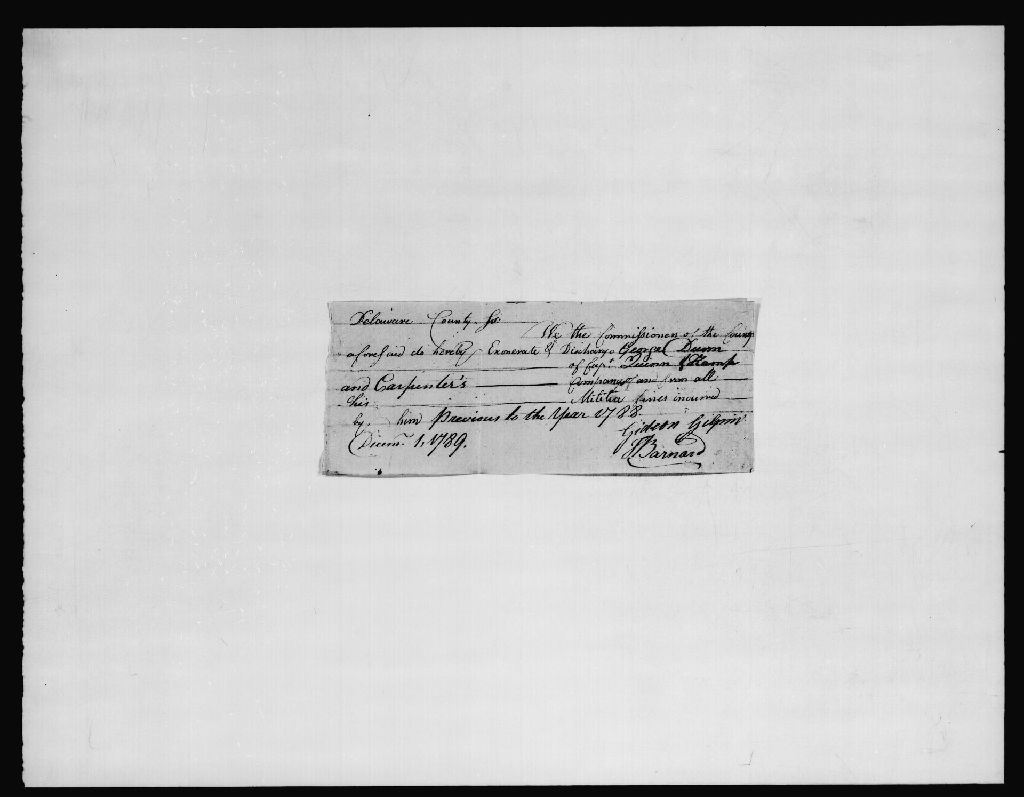 Delaware County ss.
We the Commissioners of the County
aforesaid do hereby Exonerate & Discharge George Dunn
of Capt. &
and Carpenter's Company and from all
his Militia fines incurred
by him Previous to the Year 1788.
Gideon Gilpin
Decemr. 1, 1789. Barnard